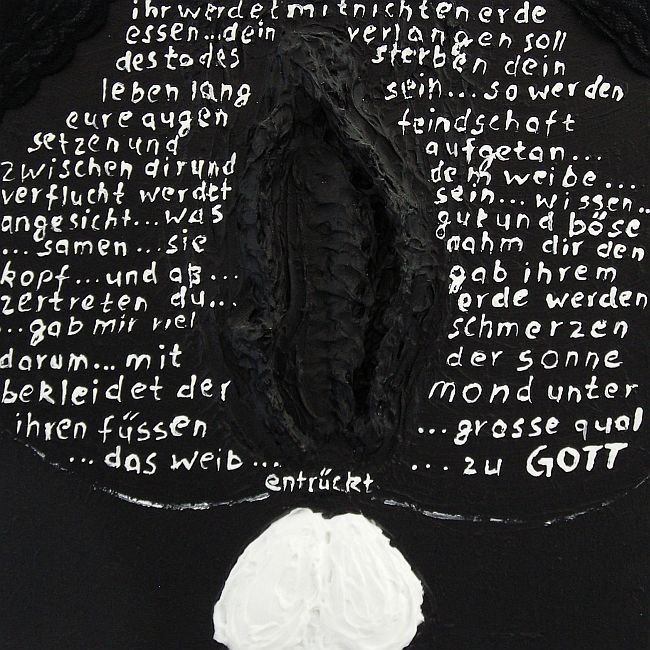 ihr werdet mit nichten erde
essen...dein verlangen soll
des todes sterben dein
leben lang sein...so werden
eure augen feindschaft
setzen und aufgetan...
zwischen dir und dein weibe...
verflucht werdet sein...wissen..
angesicht...was gut und böse
...samen...sie nahm dir den
kopf...und aß... gab ihrem
zertreten du... erde werden
...gab mir viel schmerzen
darum...mit der sonne
bekleidet der mond unter
ihren füssen ...grosse qual
...das weib... ...zu GOTT
entrückt